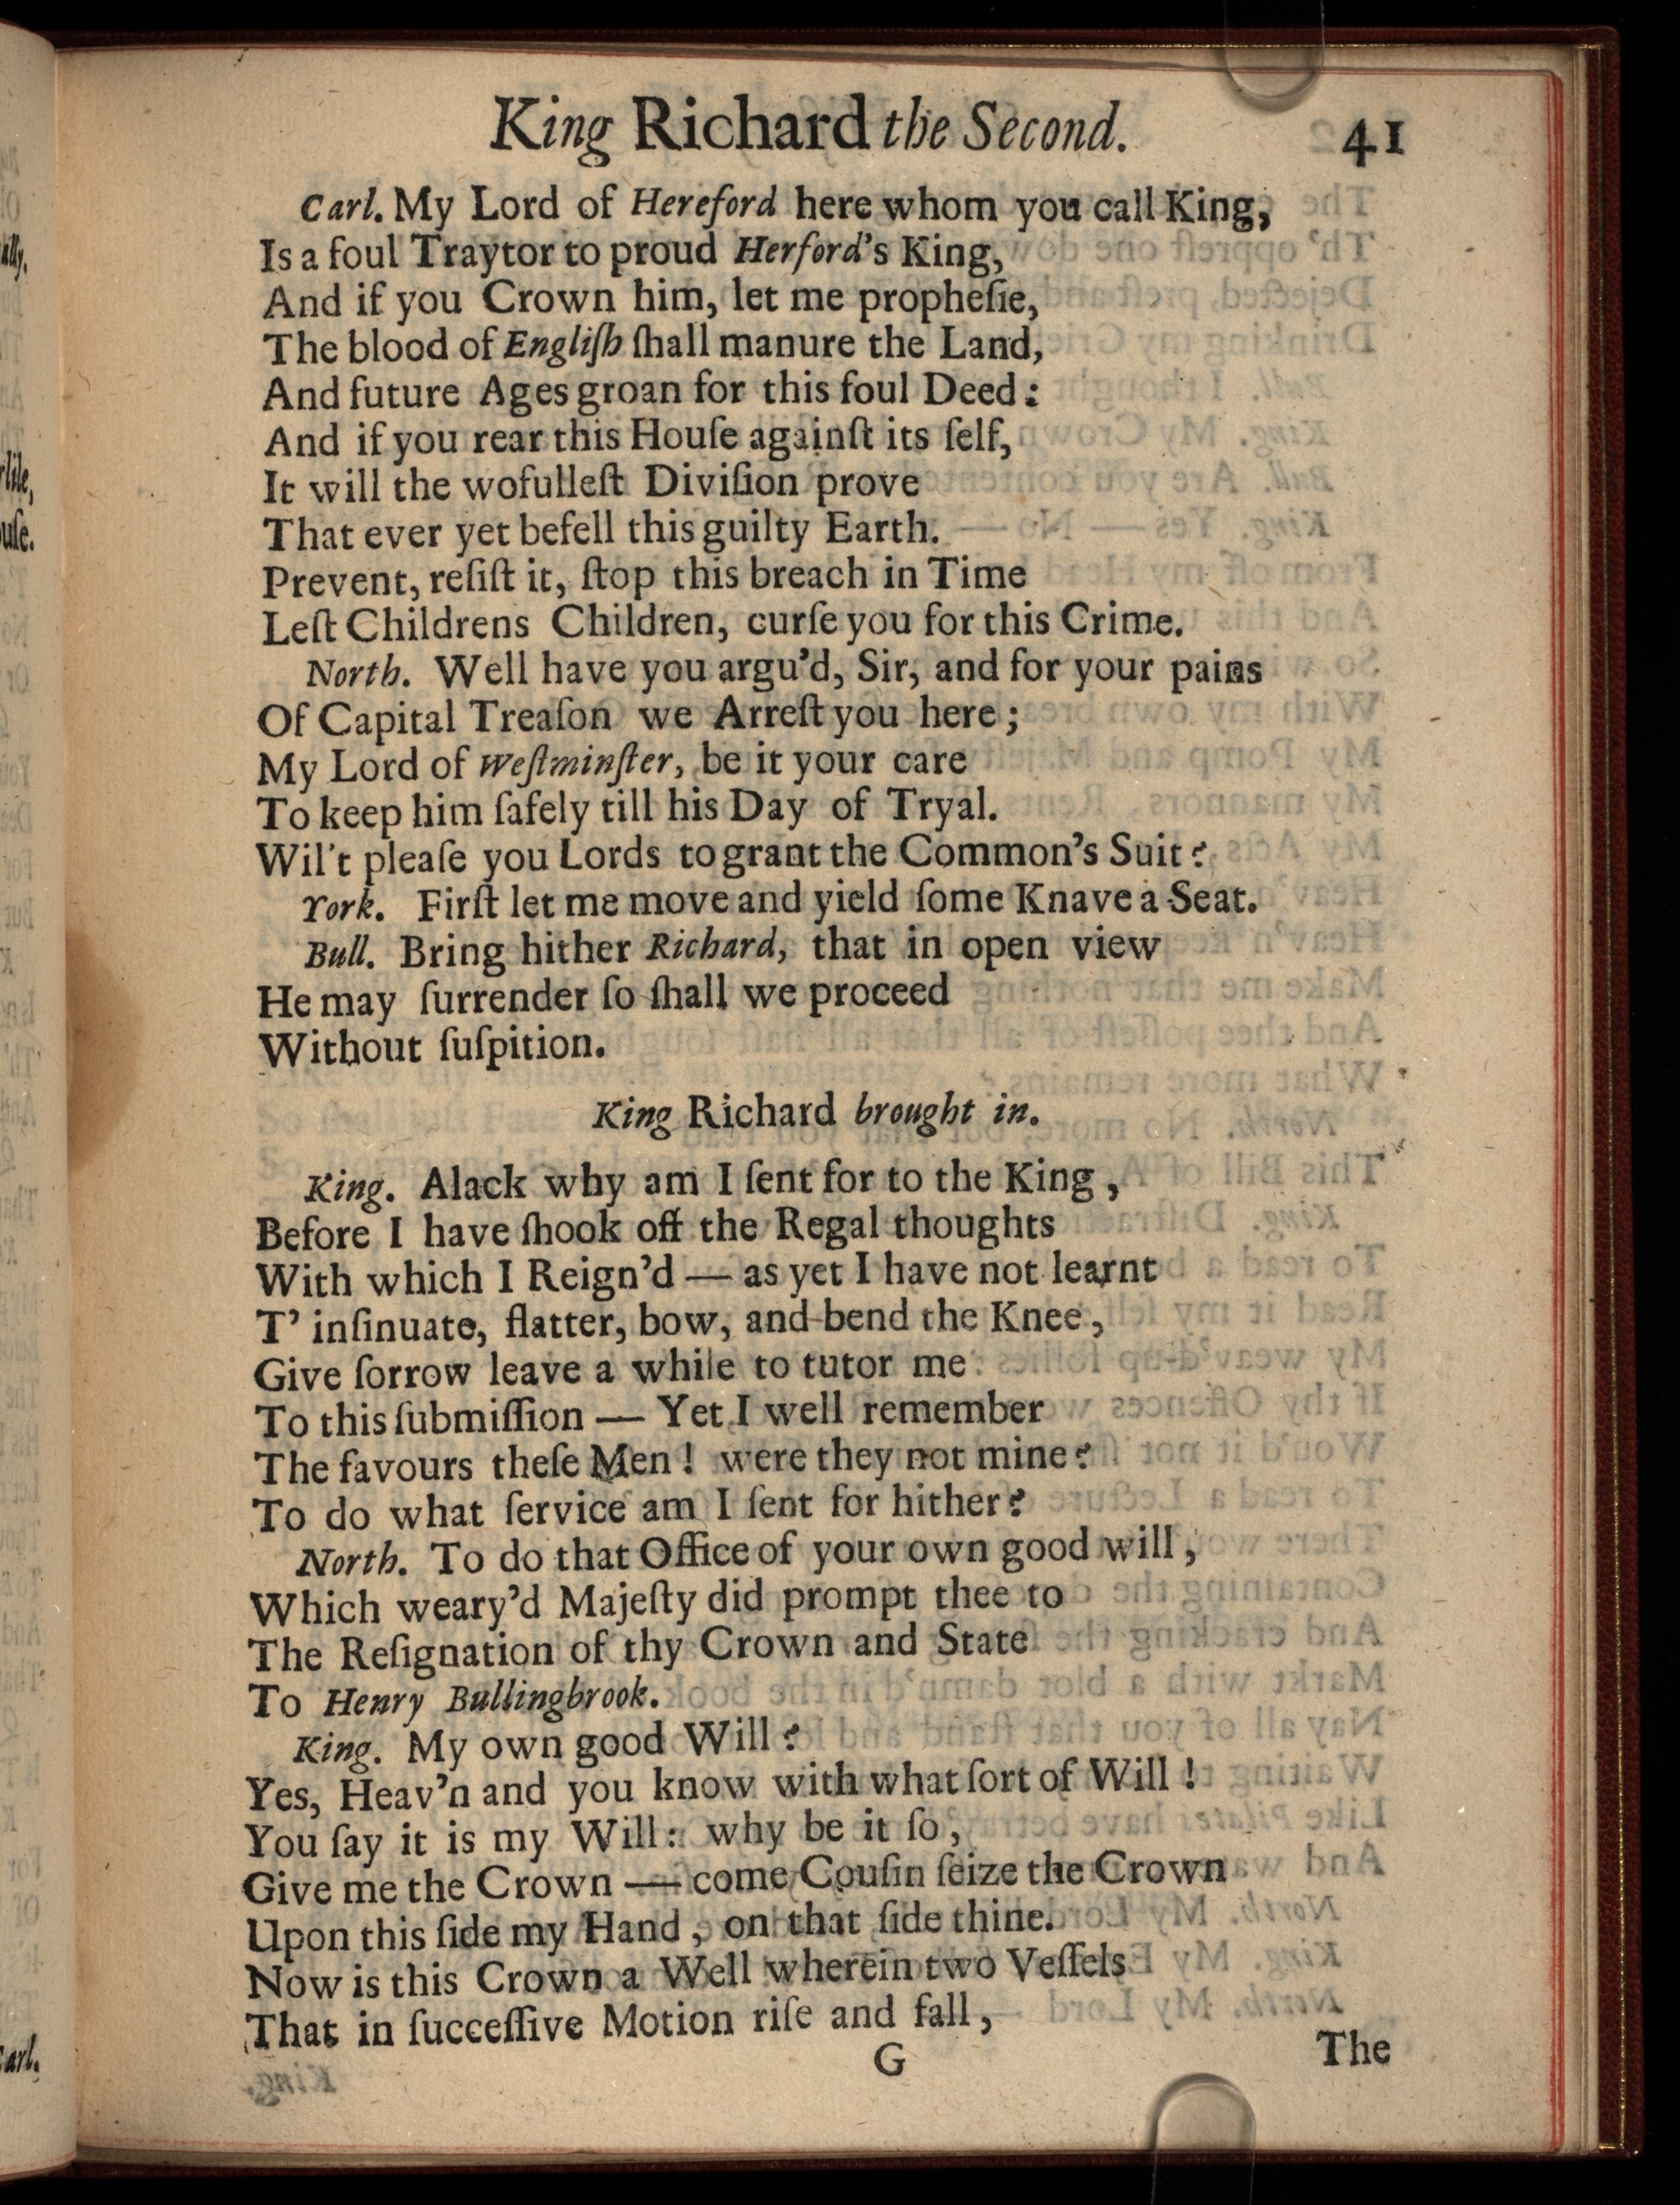 King Richard the Second. 41
Carl. My Lord of Hereford here whom you call King,
Is a foul Traytor to proud Herford's King,
And if you Crown him, let me propheſie,
The blood of Engliſh ſhall manure the Land,
And future Ages groan for this foul Deed:
And if you rear this Houſe againſt its ſelf,
It will the wofulleſt Diviſion prove
That ever yet befell this guilty Earth.
Prevent, reſiſt it, ſtop this breach in Time
Leſt Childrens Children, curſe you for this Crime.
North. Well have you argu'd, Sir, and for your pains
Of Capital Treaſon we Arreſt you here;
My Lord of Weſtminſter, be it your care
To keep him ſafely till his Day of Tryal.
Wil't pleaſe you Lords to grant the Common's Suit?
York. Firſt let me move and yield ſome Knave a Seat.
Bull. Bring hither Richard, that in open view
He may ſurrender ſo ſhall we proceed
Without ſuſpition.
King Richard brought in.
King. Alack why am I ſent for to the King,
Before I have ſhook off the Regal thoughts
With which I Reign'd — as yet I have not learnt
T' inſinuate, flatter, bow, and bend the Knee,
Give ſorrow leave a while to tutor me
To this ſubmiſſion — Yet I well remember
The favours theſe Men! were they not mine?
To do what ſervice am I ſent for hither?
North. To do that Office of your own good will,
Which weary'd Majeſty did prompt thee to
The Reſignation of thy Crown and State
To Henry Bullingbrook.
King. My own good Will?
Yes, Heav'n and you know with what ſort of Will!
You ſay it is my Will: why be it ſo,
Give me the Crown — come Couſin ſeize the Crown
Upon this ſide my Hand, on that ſide thine.
Now is this Crown a Well wherein two Veſſels
That in ſucceſſive Motion riſe and fall,
G The